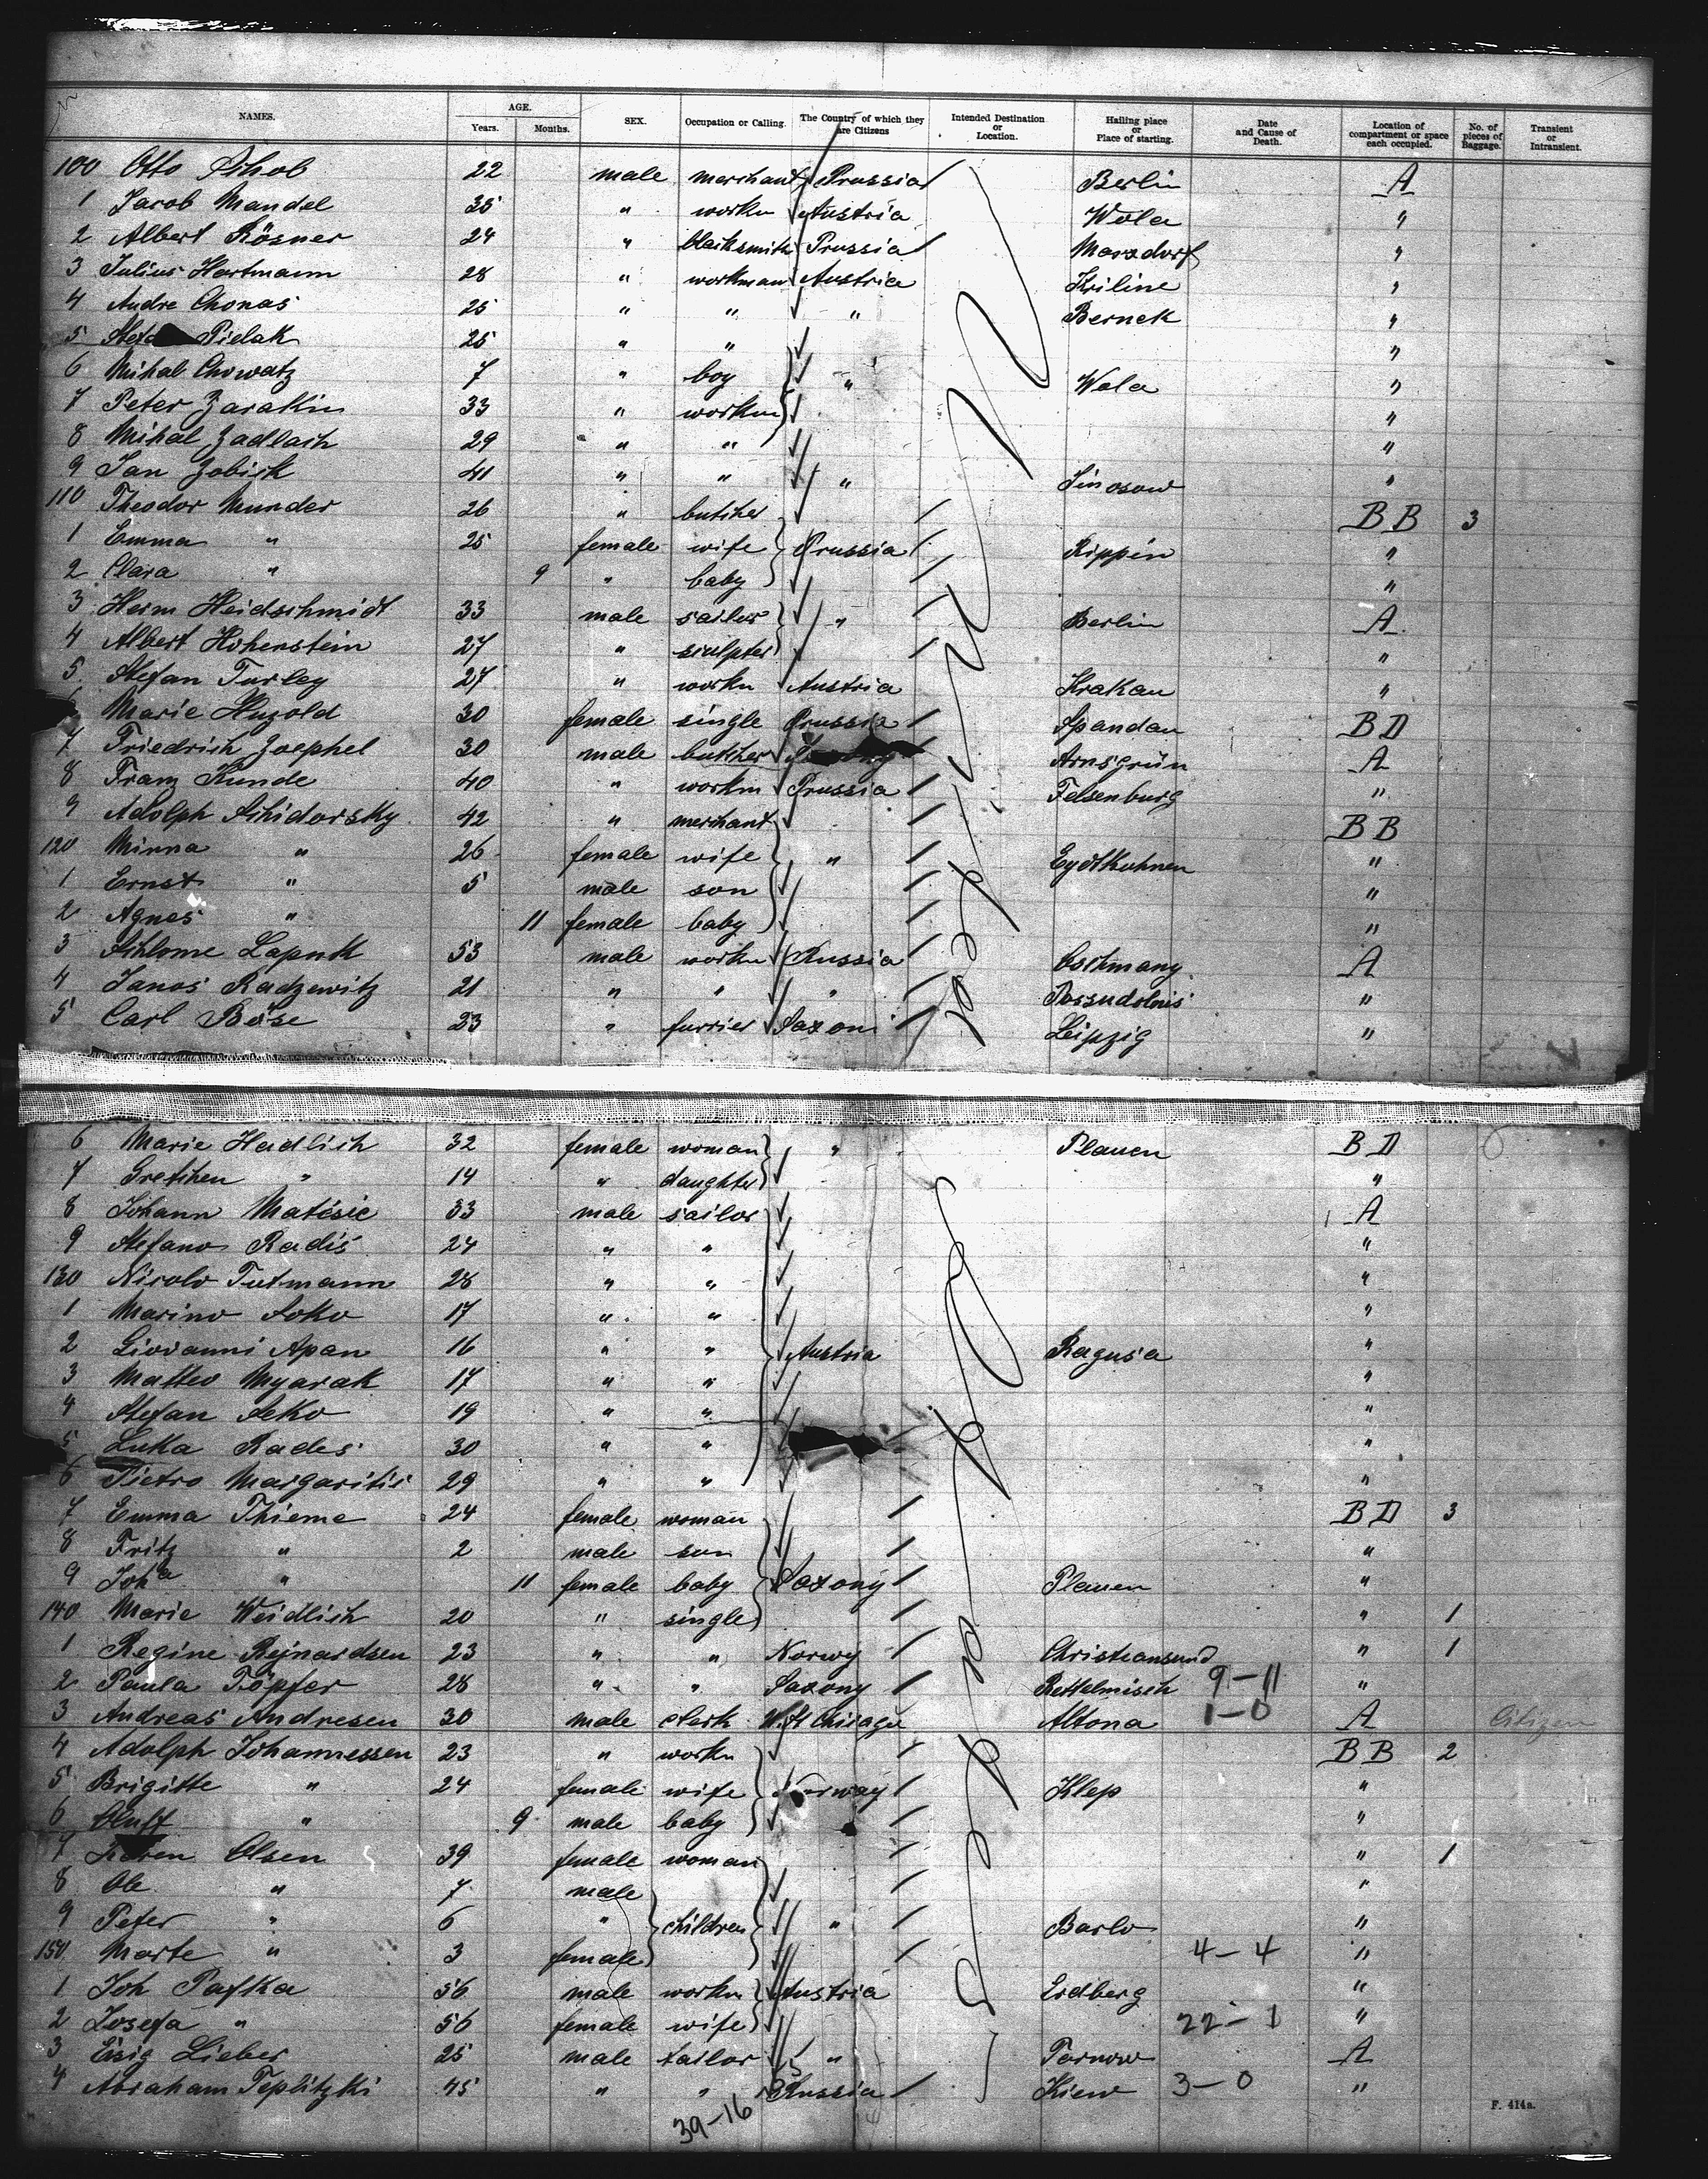 NAMES. AGE. Years. Months. SEX. Occupation or Calling. The Country of which they are Citizens Intended Destination or Location. Hailing place or Place of starting. Date and Cause of Death. Location of compartment or space each occupied. No. of pieces of Baggage. Transient or Intransient.
100 Otto 22 male merchant Prussia Berlin A
1 Jacob Mandel 35 " workm Austria Wola "
2 Albert Rösner 24 " blacksmith Prussia Marxdorf "
3 Julius Hartmann 28 " workman Austria Kriline "
4 Andre Chonas 25 " " " Bernek "
5 Pielak 25 " " "
6 Mihal Chowatz 7 " boy " Wola "
7 Peter Zarakin 33 " workm "
8 Mihal Zadlach 29 " " "
9 Jan Zobisk 41 " " " "
110 Theodor Munder 26 " butcher BB 3
1 Emma " 25 female wife Prussia Rippin "
2 Clara " 9 " baby "
3 Herm Heidschmidt 33 male sailor " Berlin A
4 Albert Hohenstein 27 " sculpter "
5 Stefan Turley 27 " workm Austria Krakau "
Marie Huzold 30 female single Prussia Spandau BD
7 Friedrich Zoephel 30 male butcher Arnsgrün A
8 Franz Kunde 40 " workm Prussia Felsenburg "
9 Adolph Schidorsky 42 " merchant BB
120 Minna " 26 female wife " Eydtkuhnen "
1 Ernst " 5 male son "
2 Agnes " 11 female baby "
3 Schlome Lapuk 53 male workm Russia Oschmany A
4 Janos Radzewitz 21 " " " "
5 Carl Böse 23 " furrier Saxoni Leipzig "
6 Marie Hadlich 32 female woman " Plauen BD
7 Gretchen " 14 " daughter "
8 Johann Matésic 33 male sailor A
9 Stefano Radis 24 " " "
130 Nicolo Tutmann 28 " " "
1 Marino Soko 17 " " "
2 Giovanni Apan 16 " " Austria Ragusa "
3 Matteo Myarak 17 " " "
4 Stefan Seko 19 " " "
5 Luka Rades 30 " " "
6 Pietro Margaritis 29 " " "
7 Emma Thieme 24 female woman BD 3
8 Fritz " 2 male son "
9 Joha " 11 female baby Saxony Plauen "
140 Marie Weidlich 20 " single " 1
1 Regine Rejnardsen 23 " " Norwy Christiansund " 1
2 Paula Töpfer 28 " " Saxony 9-11 "
3 Andreas Andresen 30 male clerk Chicago Altona 1-0 A Citizen
4 Adolph Johannessen 23 " workm BB 2
5 Brigitte " 24 female wife Norway Klep "
6 Oluff " 9 male baby "
7 Karen Olsen 39 female woman " 1
8 Ole " 7 male "
9 Peter " 6 " children " Barlo "
150 Marte " 3 female 4-4 "
1 Joh Pafka 56 male workm Austria Erdberg "
2 Josefa " 56 female wife 22-1 "
3 Eisig Lieber 25 male tailor " Tarnow A
4 Abraham Teplitzki 45 " " Russia Kiew 3-0 "
39-16
F. 414a.